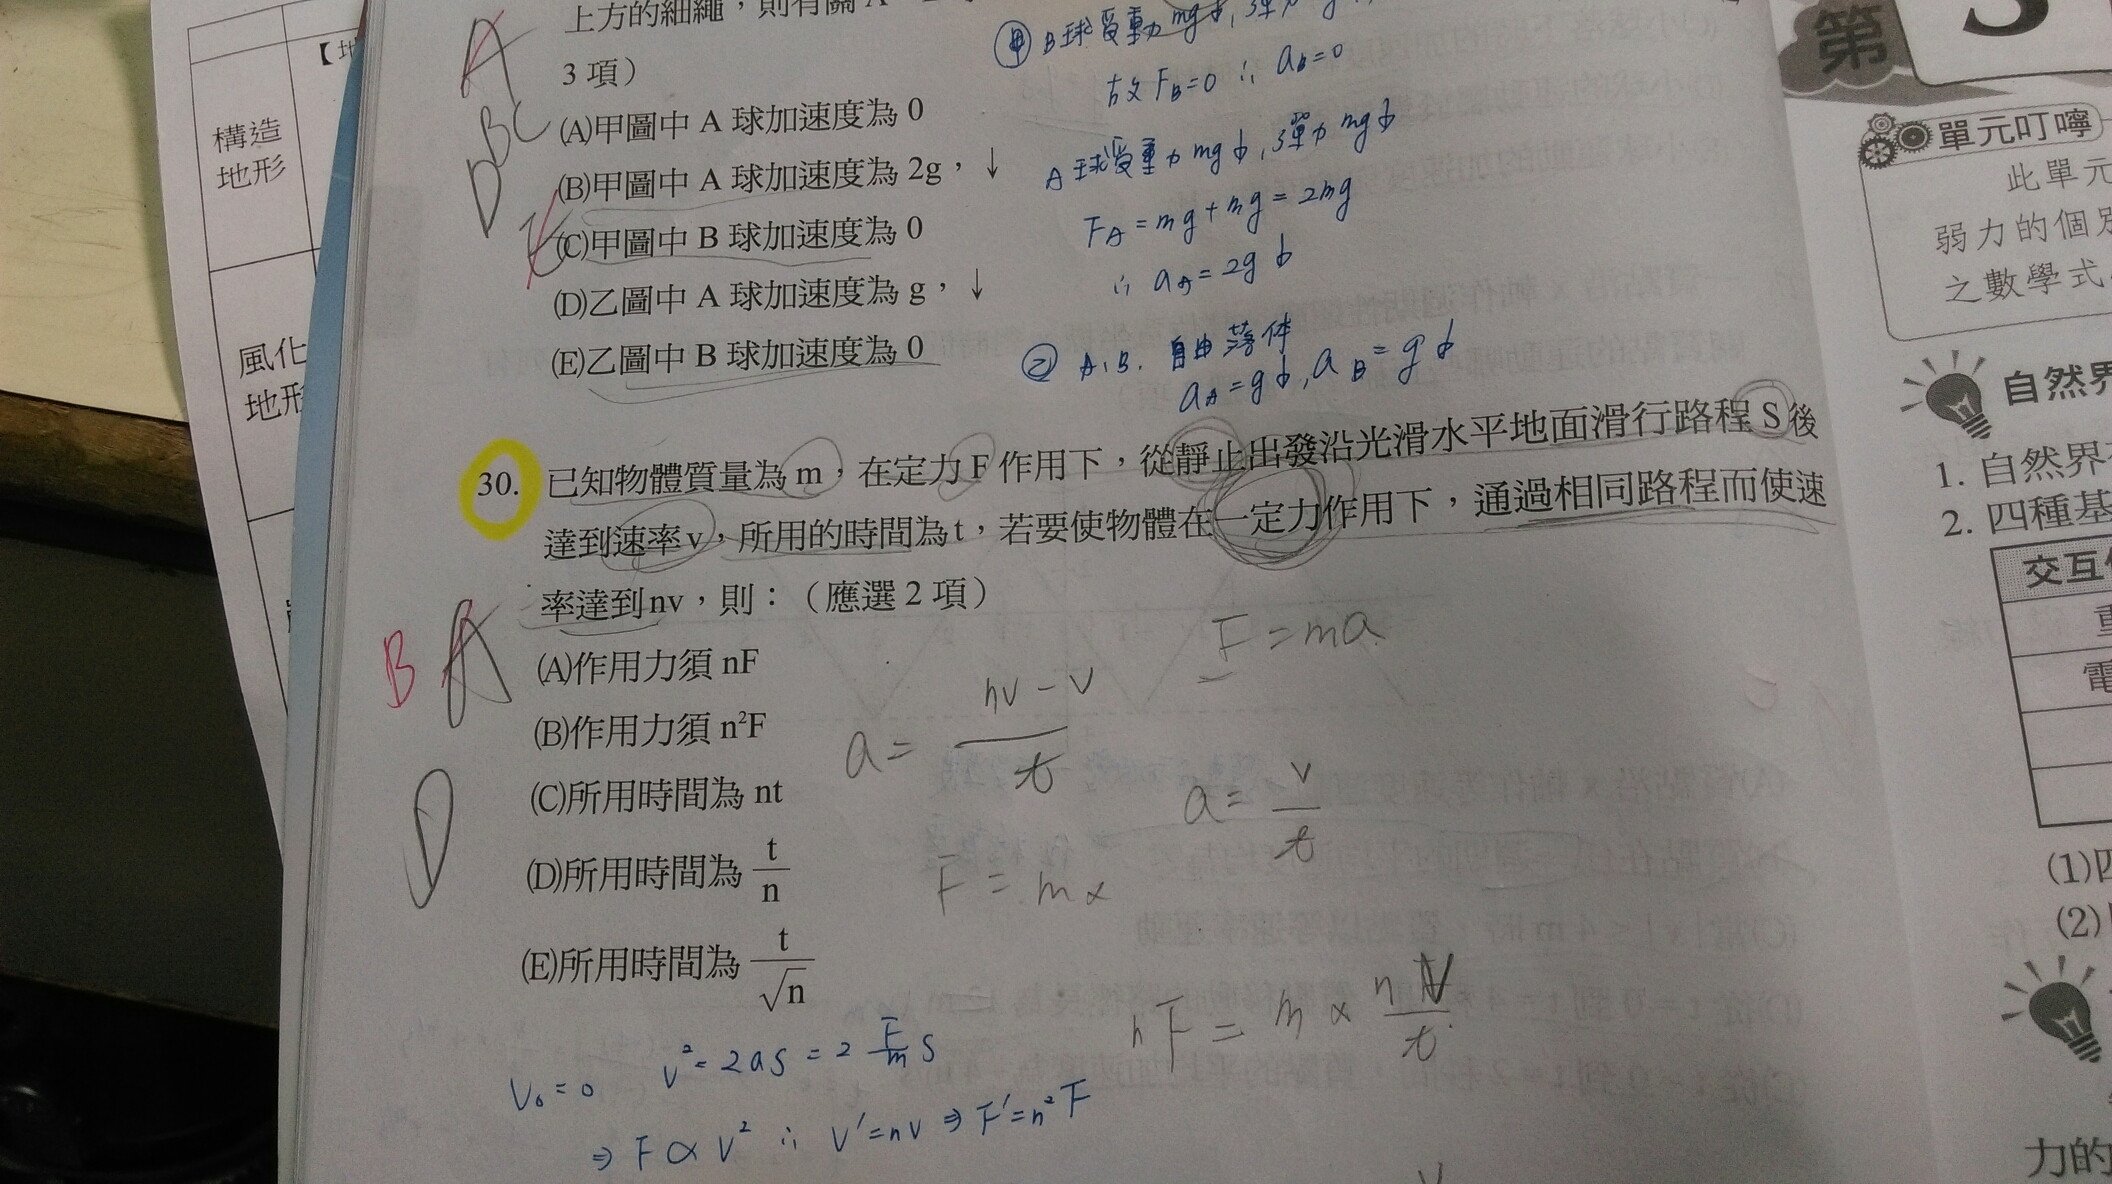 上方的細繩，則有關 A
3 項）
(A)甲圖中 A 球加速度為 0
(B)甲圖中 A 球加速度為 2g，↓
(C)甲圖中 B 球加速度為 0
(D)乙圖中 A 球加速度為 g，↓
(E)乙圖中 B 球加速度為 0
A
BC
D
E
甲 B球受重力mg↓,彈力
故 F_B=0 ∴ a_B=0
A 球受重力mg↓,彈力mg↓
F_A=mg+mg=2mg
∴ a_A=2g↓
乙 A、B. 自由落体
a_A=g↓, a_B=g↓
30. 已知物體質量為 m，在定力 F 作用下，從靜止出發沿光滑水平地面滑行路程 S 後
達到速率 v，所用的時間為 t，若要使物體在一定力作用下，通過相同路程而使速
率達到 nv，則：（應選 2 項）
(A)作用力須 nF
(B)作用力須 n²F
(C)所用時間為 nt
(D)所用時間為 t/n
(E)所用時間為 t/√n
B A
D
F=ma
a= (nv-v)/t
a= v/t
F=m×
nF= m× nV/t
V₀=0 v²=2as=2 F/m S
⇒ F∝V² ∴ V'=nV ⇒ F'=n²F
構造
地形
風化
地形
【地
第
3
單元叮嚀
此單元
弱力的個別
之數學式
自然界
1. 自然界
2. 四種基
交互作
重
電
(1)四
(2)
力的